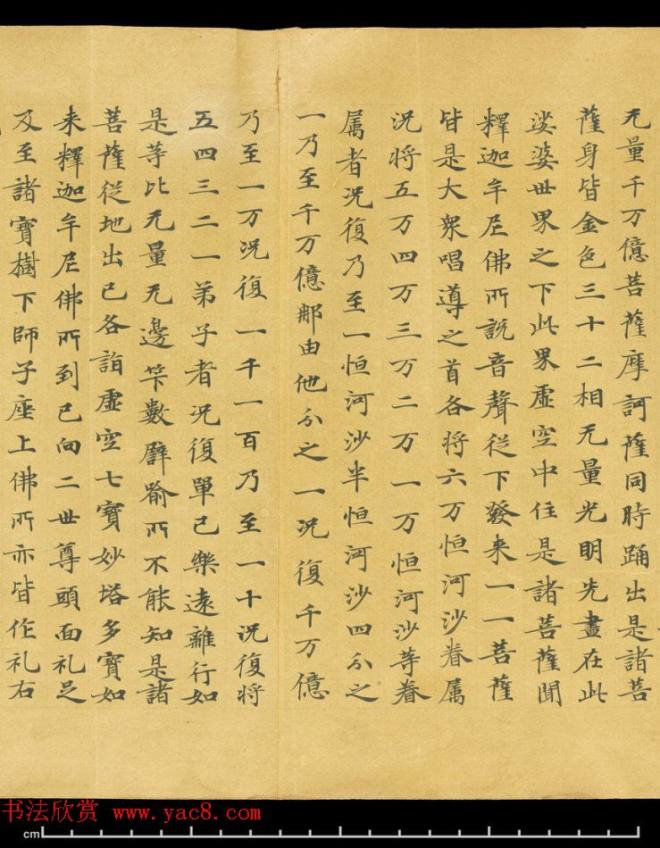 无量千万億菩薩摩訶薩同時踊出是諸菩
薩身皆金色三十二相无量光明先盡在此
娑婆世界之下此界虛空中住是諸菩薩聞
釋迦牟尼佛所說音聲從下發来一一菩薩
皆是大衆唱導之首各將六万恒河沙眷属
况將五万四万三万二万一万恒河沙等眷
属者况復乃至一恒河沙半恒河沙四分之
一乃至千万億那由他分之一况復千万億
乃至一万况復一千一百乃至一十况復將
五四三二一弟子者况復單己樂遠離行如
是等比无量无邊筭數譬喻所不能知是諸
菩薩従地出已各詣虛空七寶妙塔多寶如
来釋迦牟尼佛所到已向二世尊頭面礼足
及至諸寶樹下師子座上佛所亦皆作礼右
书法欣赏 www.yac8.com
cm